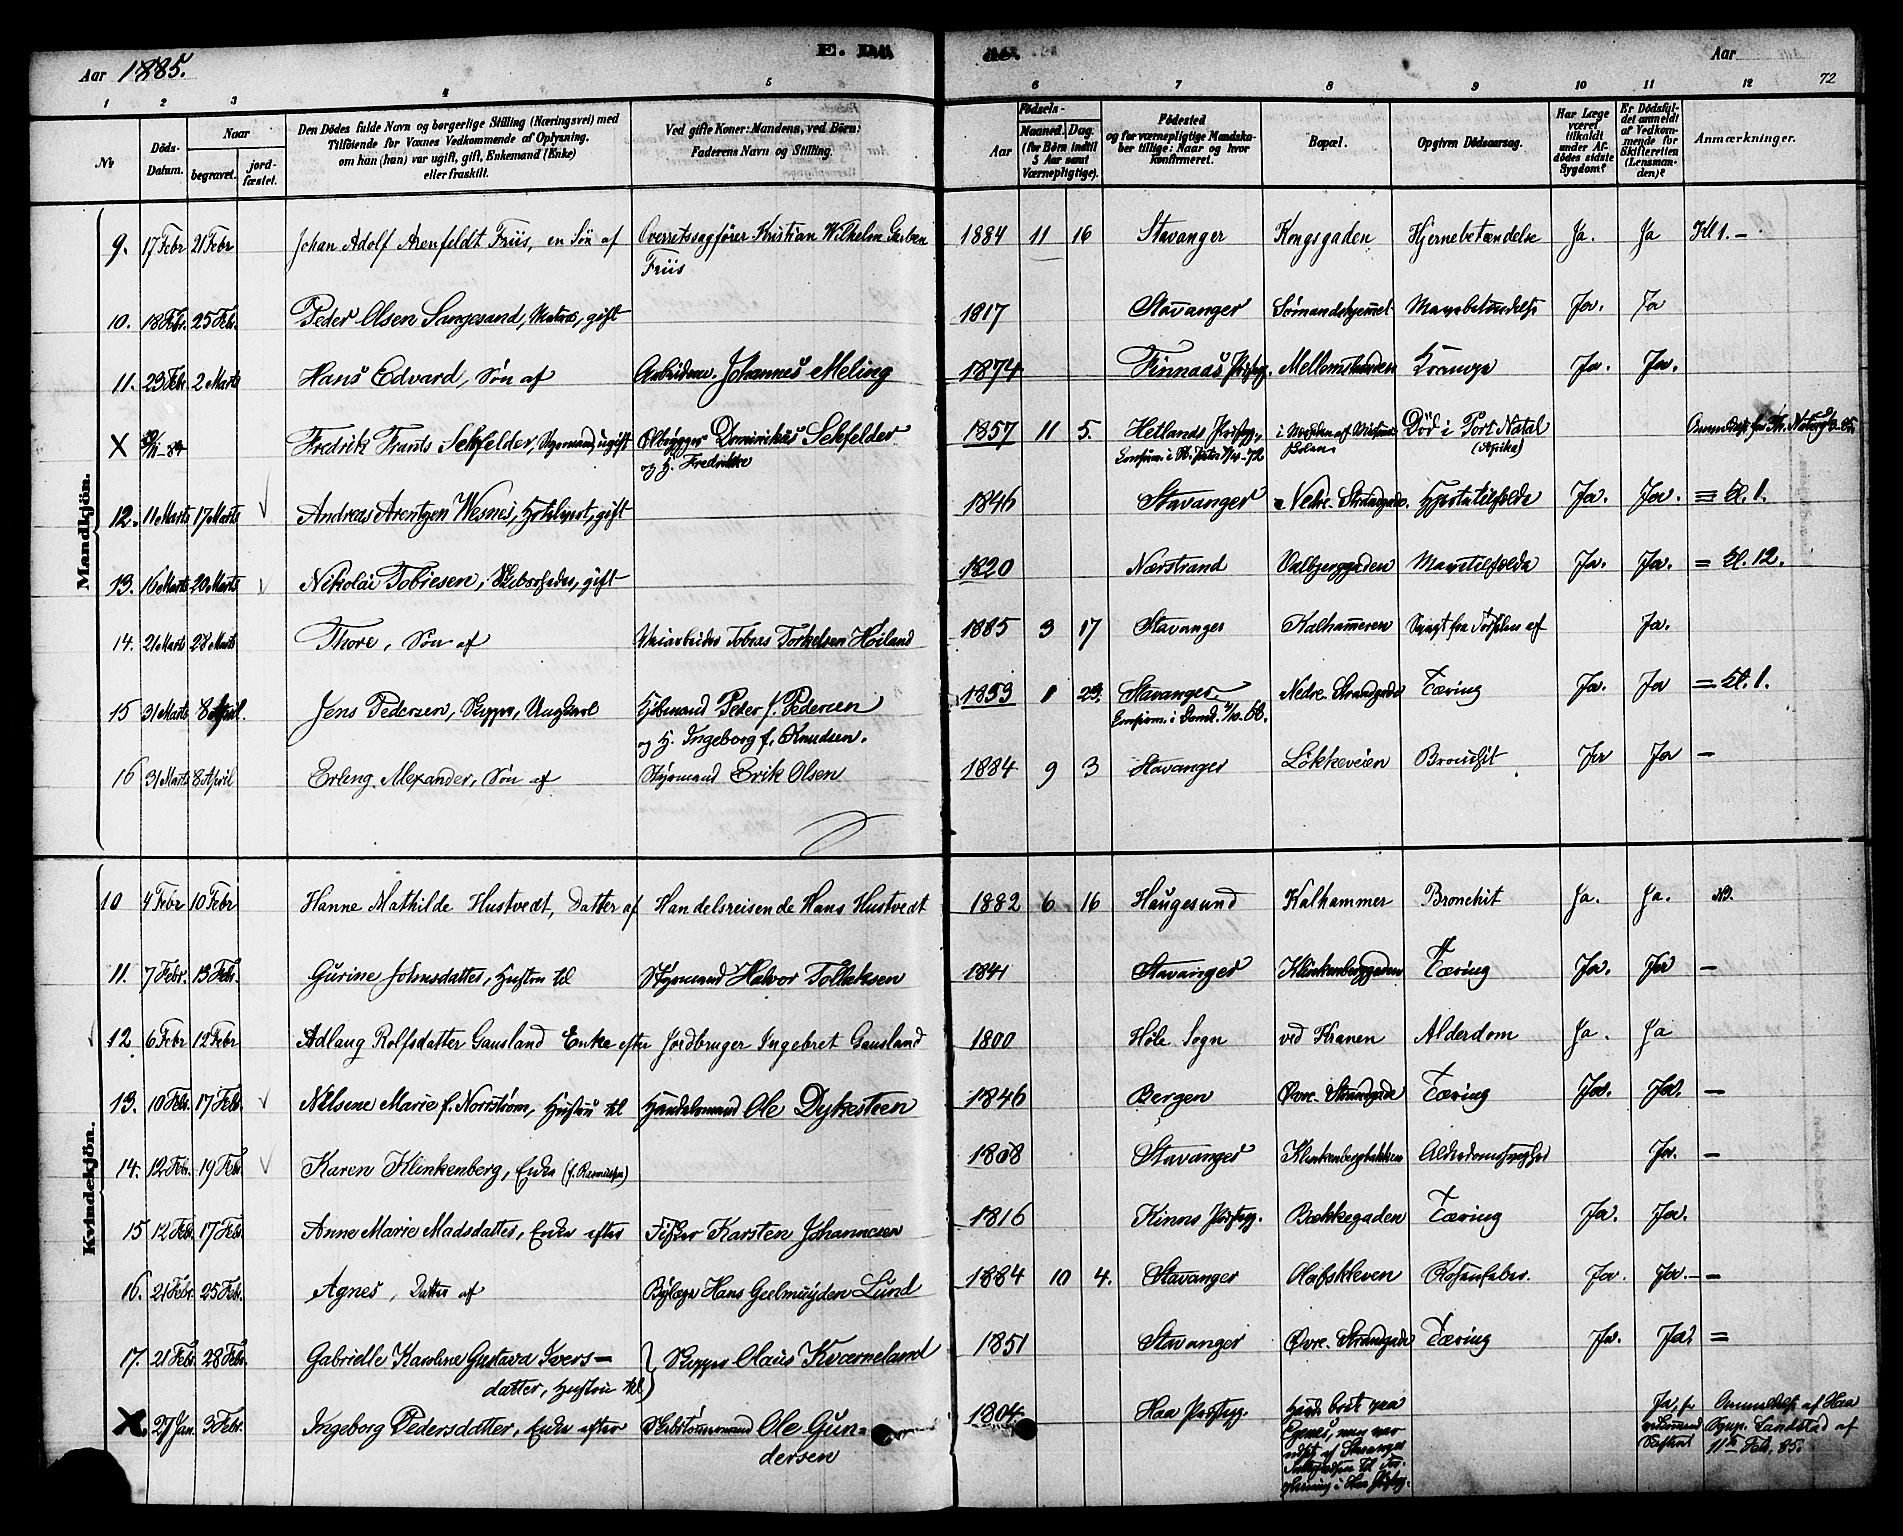 Aar 1885.
E. Dö
de.
Aar
72
1 2 3 4 5 6 7 8 9 10 11 12
No
Döds-Datum.
Naar
begravet.
jord-fæstet.
Den Dödes fulde Navn og borgerlige Stilling (Næringsvei) med
Tilföiende for Voxnes Vedkommende af Oplysning.
om han (hun) var ugift, gift, Enkemand (Enke)
eller fraskilt.
Ved gifte Koner: Mandens, ved Börn:
Faderens Navn og Stilling.
Födsels-
Aar
Maaned. Dag.
(for Börn indtil
5 Aar samt
Værnepligtige).
Födested
og for værnepligtige Mandska-
ber tillige: Naar og hvor
konfirmeret.
Bopæl.
Opgiven Dödsaarsag.
Har Læge
været
tilkaldt
under Af-
dödes sidste
Sygdom?
Er Dödsfal-
det anmeldt
af Vedkom-
mende for
Skifteretten
(Lensman-
den)?
Anmærkninger.
Mandkjön.
9. 17 Febr 21 Febr Johan Adolf Arenfeldt Friis, en Søn af Overretssagfører Kristian Wilhelm Friis 1884 11 16 Stavanger Kongsgaden Hjernebetændelse Ja. Ja Kl 1. –
10. 18 Febr. 25 Feb. Peder Olsen Sangesand, Matros, gift 1817 Stavanger Mavebetændelse Ja. Ja
11. 23 Febr. 2 Marts Hans Edvard, Søn af Arbeidsm. Johannes Meling 1874 Finnaas Præstegj. Krampe Ja. Ja.
X Fredrik Frants Sehfelder, Styrmand, ugift Ølbrygger Dominikus Sehfelder og H. Fredrikke 1857 11 5. Hetlands Præstegj. Død i Port Natal (Afrika)
12. 11 Marts 17 Marts Andreas Arentzen Wesnes, gift 1846 Stavanger Nedre Strandgade. Hjertetilfælde Ja. Ja. = Kl. 1.
13. 16 Marts 20 Marts Nikolai Tobiesen, Skibsreder, gift 1820 Nærstrand Valbjerggaden Mavetilfælde Ja. Ja. = Kl. 12.
14. 21 Marts 28 Marts Thore, Søn af Veiarbeider Tobias Torkelsen Høiland 1885 3 17 Stavanger Kalhammeren Svagt fra Fødselen af Ja.
15 31 Marts 8 April. Jens Pedersen, Skipper, Ungkarl Kjøbmand Peder J. Pedersen og H. Ingeborg f. Knudsen. 1853 1 29. Stavanger. Nedre Strandgade Tæring Ja. Ja = Kl. 1.
16 31 Marts 8 April Erling Alexander, Søn af Styrmand Erik Olsen 1884 9 3 Stavanger Løkkeveien Bronchit Ja Ja –
Kvindekjön.
10 4 Febr 10 Febr Hanne Mathilde Hustvedt, Datter af Handelsreisende Hans Hustvedt 1882 6 16 Haugesund Kalhammer Bronchit Ja. Ja.
11. 7 Febr. 13 Feb. Gurine Johnsdatter, Hustru til Styrmand Halvor Tollaksen 1841 Stavanger Klinkenberggaden Tæring Ja. Ja –
12 6 Febr 12 Febr Adlaug Rolfsdatter Gausland Enke efter Jordbruger Ingebret Gausland 1800 Høle Sogn ved Kranen Alderdom Ja. Ja
13. 10 Feb. 17 Feb. Nilsine Marie f. Norrstrøm, Hustru til Handelsmand Ole Dykesteen 1846 Bergen Øvre Strandgade Tæring Ja. Ja. –
14. 12 Feb. 19 Feb. Karen Klinkenberg, Enke (f. Rasmussen) 1808 Stavanger Klinkenbergbakken Alderdomssvaghed Ja. –
15 12 Feb. 17 Feb. Anne Marie Madsdatter, Enke efter Fisker Karsten Johannesen 1816 Kinns Præstegj. Bækkegaden Tæring Ja. Ja.
16. 21 Febr. 25 Feb. Agnes, Datter af Bylæge Hans Geelmuyden Lund 1884 10 4. Stavanger Olafskleven Rosenfeber. Ja. Ja. –
17. 21 Feb. 28 Feb. Gabrielle Karoline Gustava Ivers-
datter, Hustru til Skipper Olaus Kværneland 1851 Stavanger Øvre Strandgade Tæring Ja. Ja. =
X. 27 Jan. 3 Feb. Ingeborg Pedersdatter, Enke efter Skibstømmermand Ole Gun-
dersen 1804 Haa Præstegj. Anmeldelse af Haa Landstad af 11te Feb. 85.